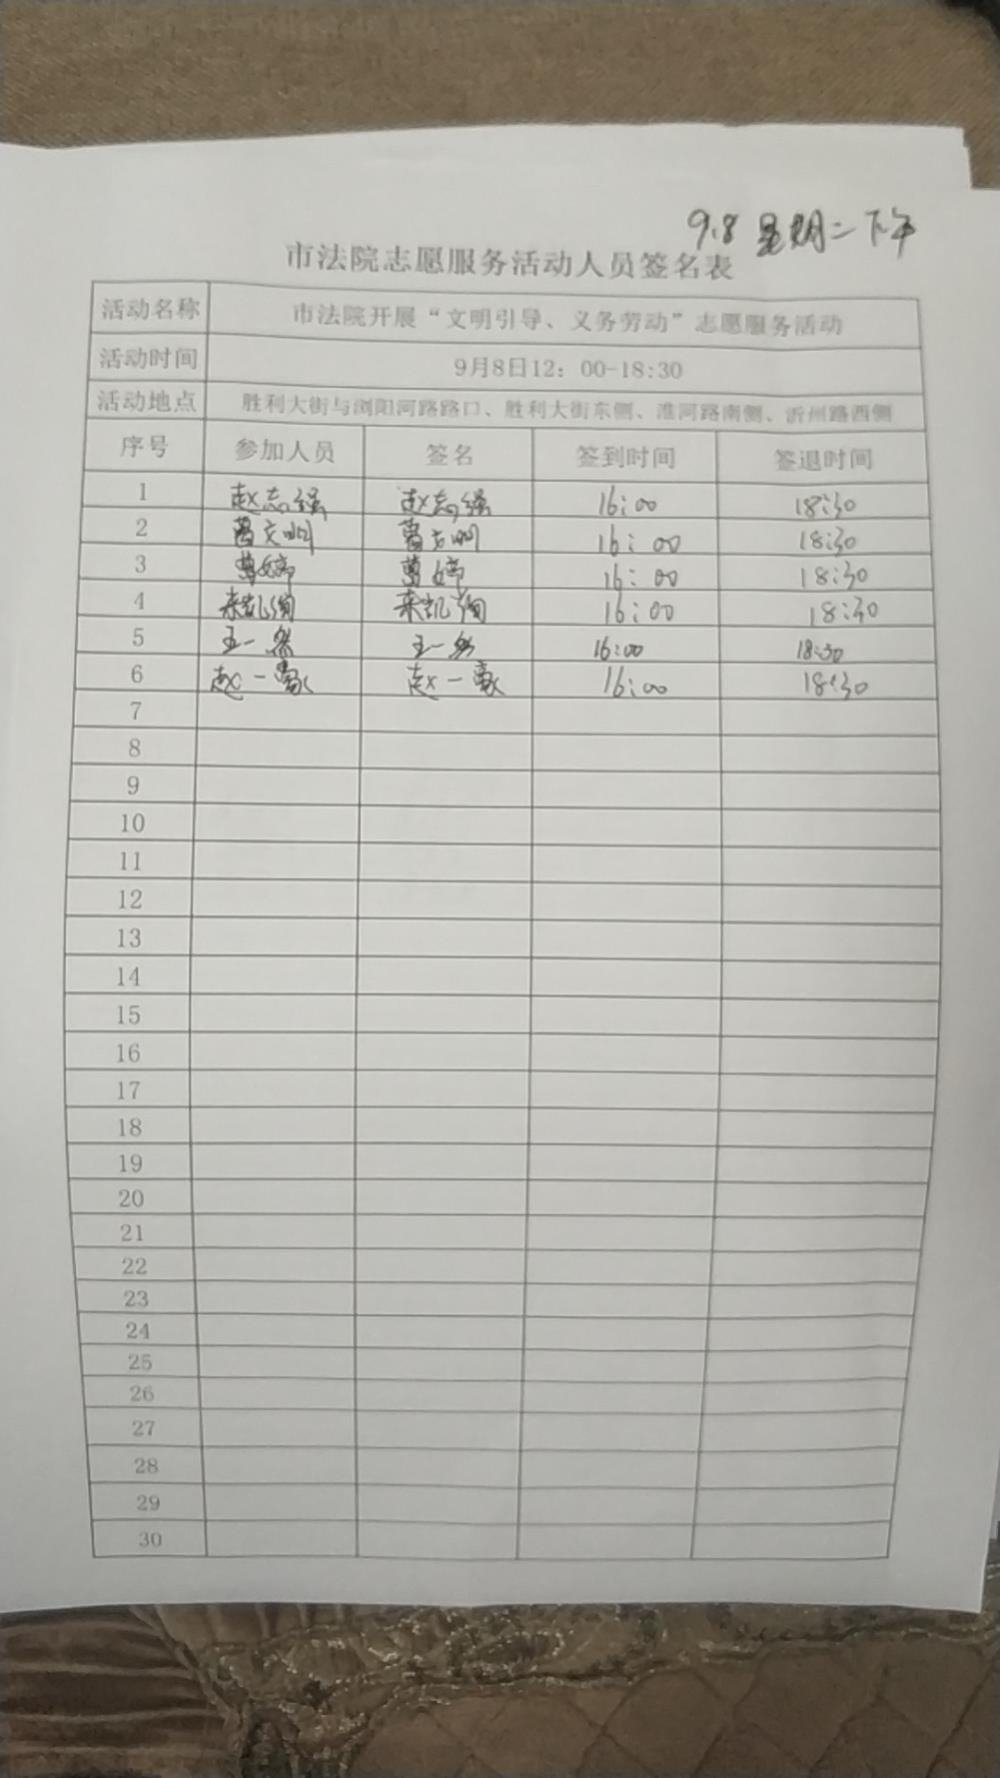 9.8 星期二下午
市法院志愿服务活动人员签名表
活动名称 市法院开展“文明引导、义务劳动”志愿服务活动
活动时间 9月8日12：00-18:30
活动地点 胜利大街与浏阳河路路口、胜利大街东侧、淮河路南侧、沂州路西侧
序号 参加人员 签名 签到时间 签退时间
1 赵志强 赵志强 16:00 18:30
2 葛文明 葛文明 16:00 18:30
3 葛婷 葛婷 16:00 18:30
4 来凯绚 来凯绚 16:00 18:30
5 王一然 王一然 16:00 18:30
6 赵一豪 赵一豪 16:00 18:30
7
8
9
10
11
12
13
14
15
16
17
18
19
20
21
22
23
24
25
26
27
28
29
30